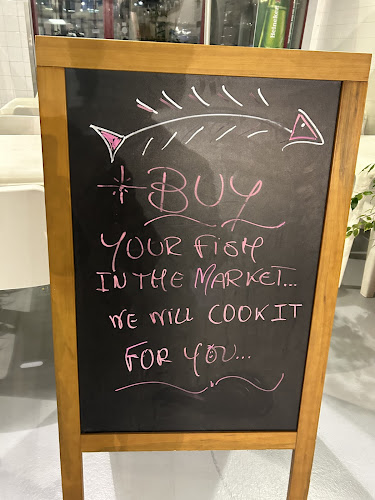 Heineken
BUY
YOUR FISH
IN THE MARKET...
WE WILL COOK IT
FOR YOU...